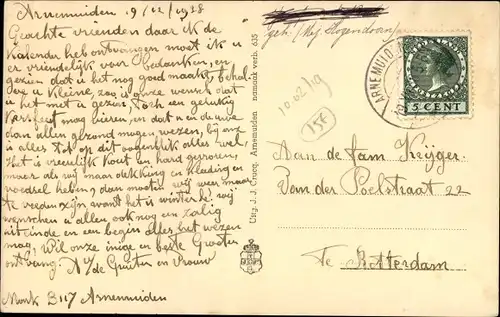 Arnemuiden 19/12/1938
Geachte vrienden daar ik de
Kalender heb ontvangen moet ik u
er vriendelijk voor bedanken, en
gezien dat u het nog goed maakt, behal-
ve u kleine, zoo is onze wensch dat
u het met u gezin, toch een gelukkig
Kerstfeest mag vieren, en dat u en de uwe
dan allen gezond mogen wezen, bij ons
is alles tot op dit oogenblik alles wel.
Het is vreselijk koud en hard gevroren,
maar als wij maar dekking en kleeding en
voedsel hebben, dan moeten wij weer maar
te vreden zijn want het is winter he, wij
wenschen u allen ook nog een zalig
uiteinde en een begin alles het wezen
mag, Wil onze innige en beste Groeten
ontvang. A/de Gruiter en Vrouw
Monk B117 Arnemuiden
Uitg. J. J. Crucq, Arnemuiden namaak verb. 635
10.02/g
15f
ARNEMUIDEN
5 CENT
Aan de fam Krijger.
van der Poelstraat 22
Te Rotterdam